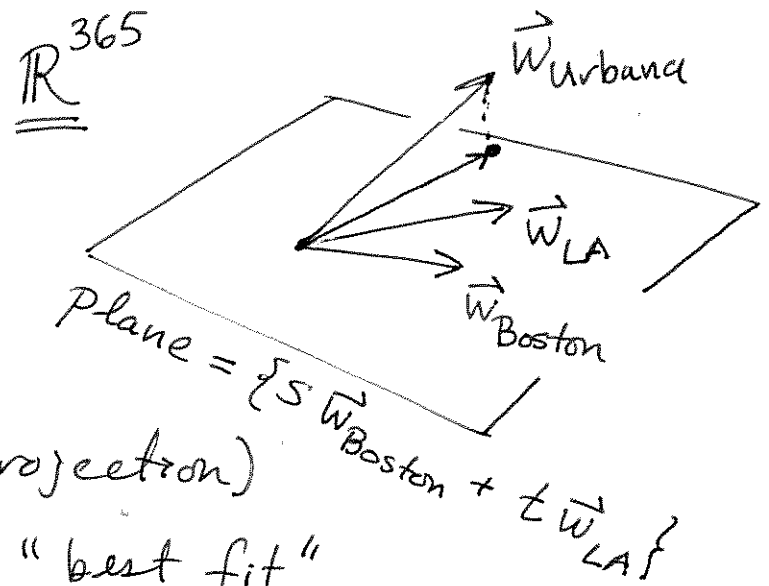 ℝ^365
w⃗_Urbana
w⃗_LA
w⃗_Boston
Plane = {s w⃗_Boston + t w⃗_LA}
rojection)
"best fit"